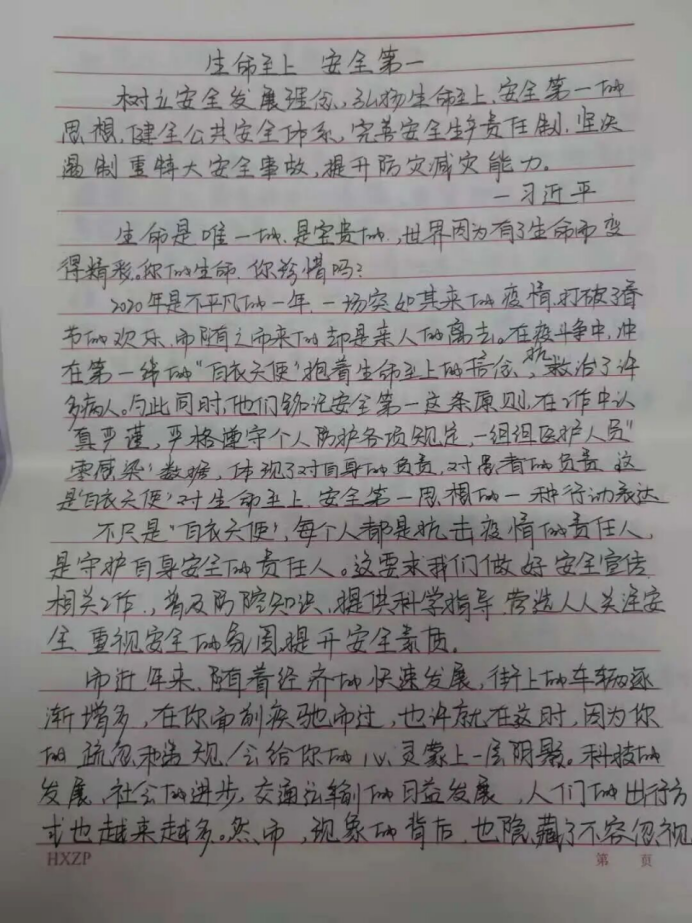 生命至上 安全第一
树立安全发展理念,弘扬生命至上、安全第一的
思想,健全公共安全体系,完善安全生产责任制,坚决
遏制重特大安全事故,提升防灾减灾能力。
—习近平
生命是唯一的,是宝贵的,世界因为有了生命而变
得精彩。你的生命,你珍惜吗?
2020年是不平凡的一年,一场突如其来的疫情,打破了春
节的欢乐,而随之而来的却是亲人的离去。在疫斗争中,冲
在第一线的“白衣天使”抱着生命至上的信念,抗救治了许
多病人。与此同时,他们铭记安全第一这条原则,在工作中认
真严谨,严格遵守个人防护各项规定,一组组医护人员“
零感染”数据,体现了对自身的负责,对患者的负责,这
是“白衣天使”对生命至上、安全第一思想的一种行动表达
不只是“白衣天使”,每个人都是抗击疫情的责任人,
是守护自身安全的责任人。这要求我们做好安全宣传
相关工作,普及防控知识,提供科学指导,营造人人关注安
全、重视安全的氛围,提升安全素质。
而近年来,随着经济的快速发展,街上的车辆逐
渐增多,在你面前疾驰而过,也许就在这时,因为你
的疏忽和违规,会给你的心灵蒙上一层阴影。科技的
发展,社会的进步,交通运输的日益发展,人们的出行方
式也越来越多。然而,现象的背后,也隐藏了不容忽视
HXZP 第 页